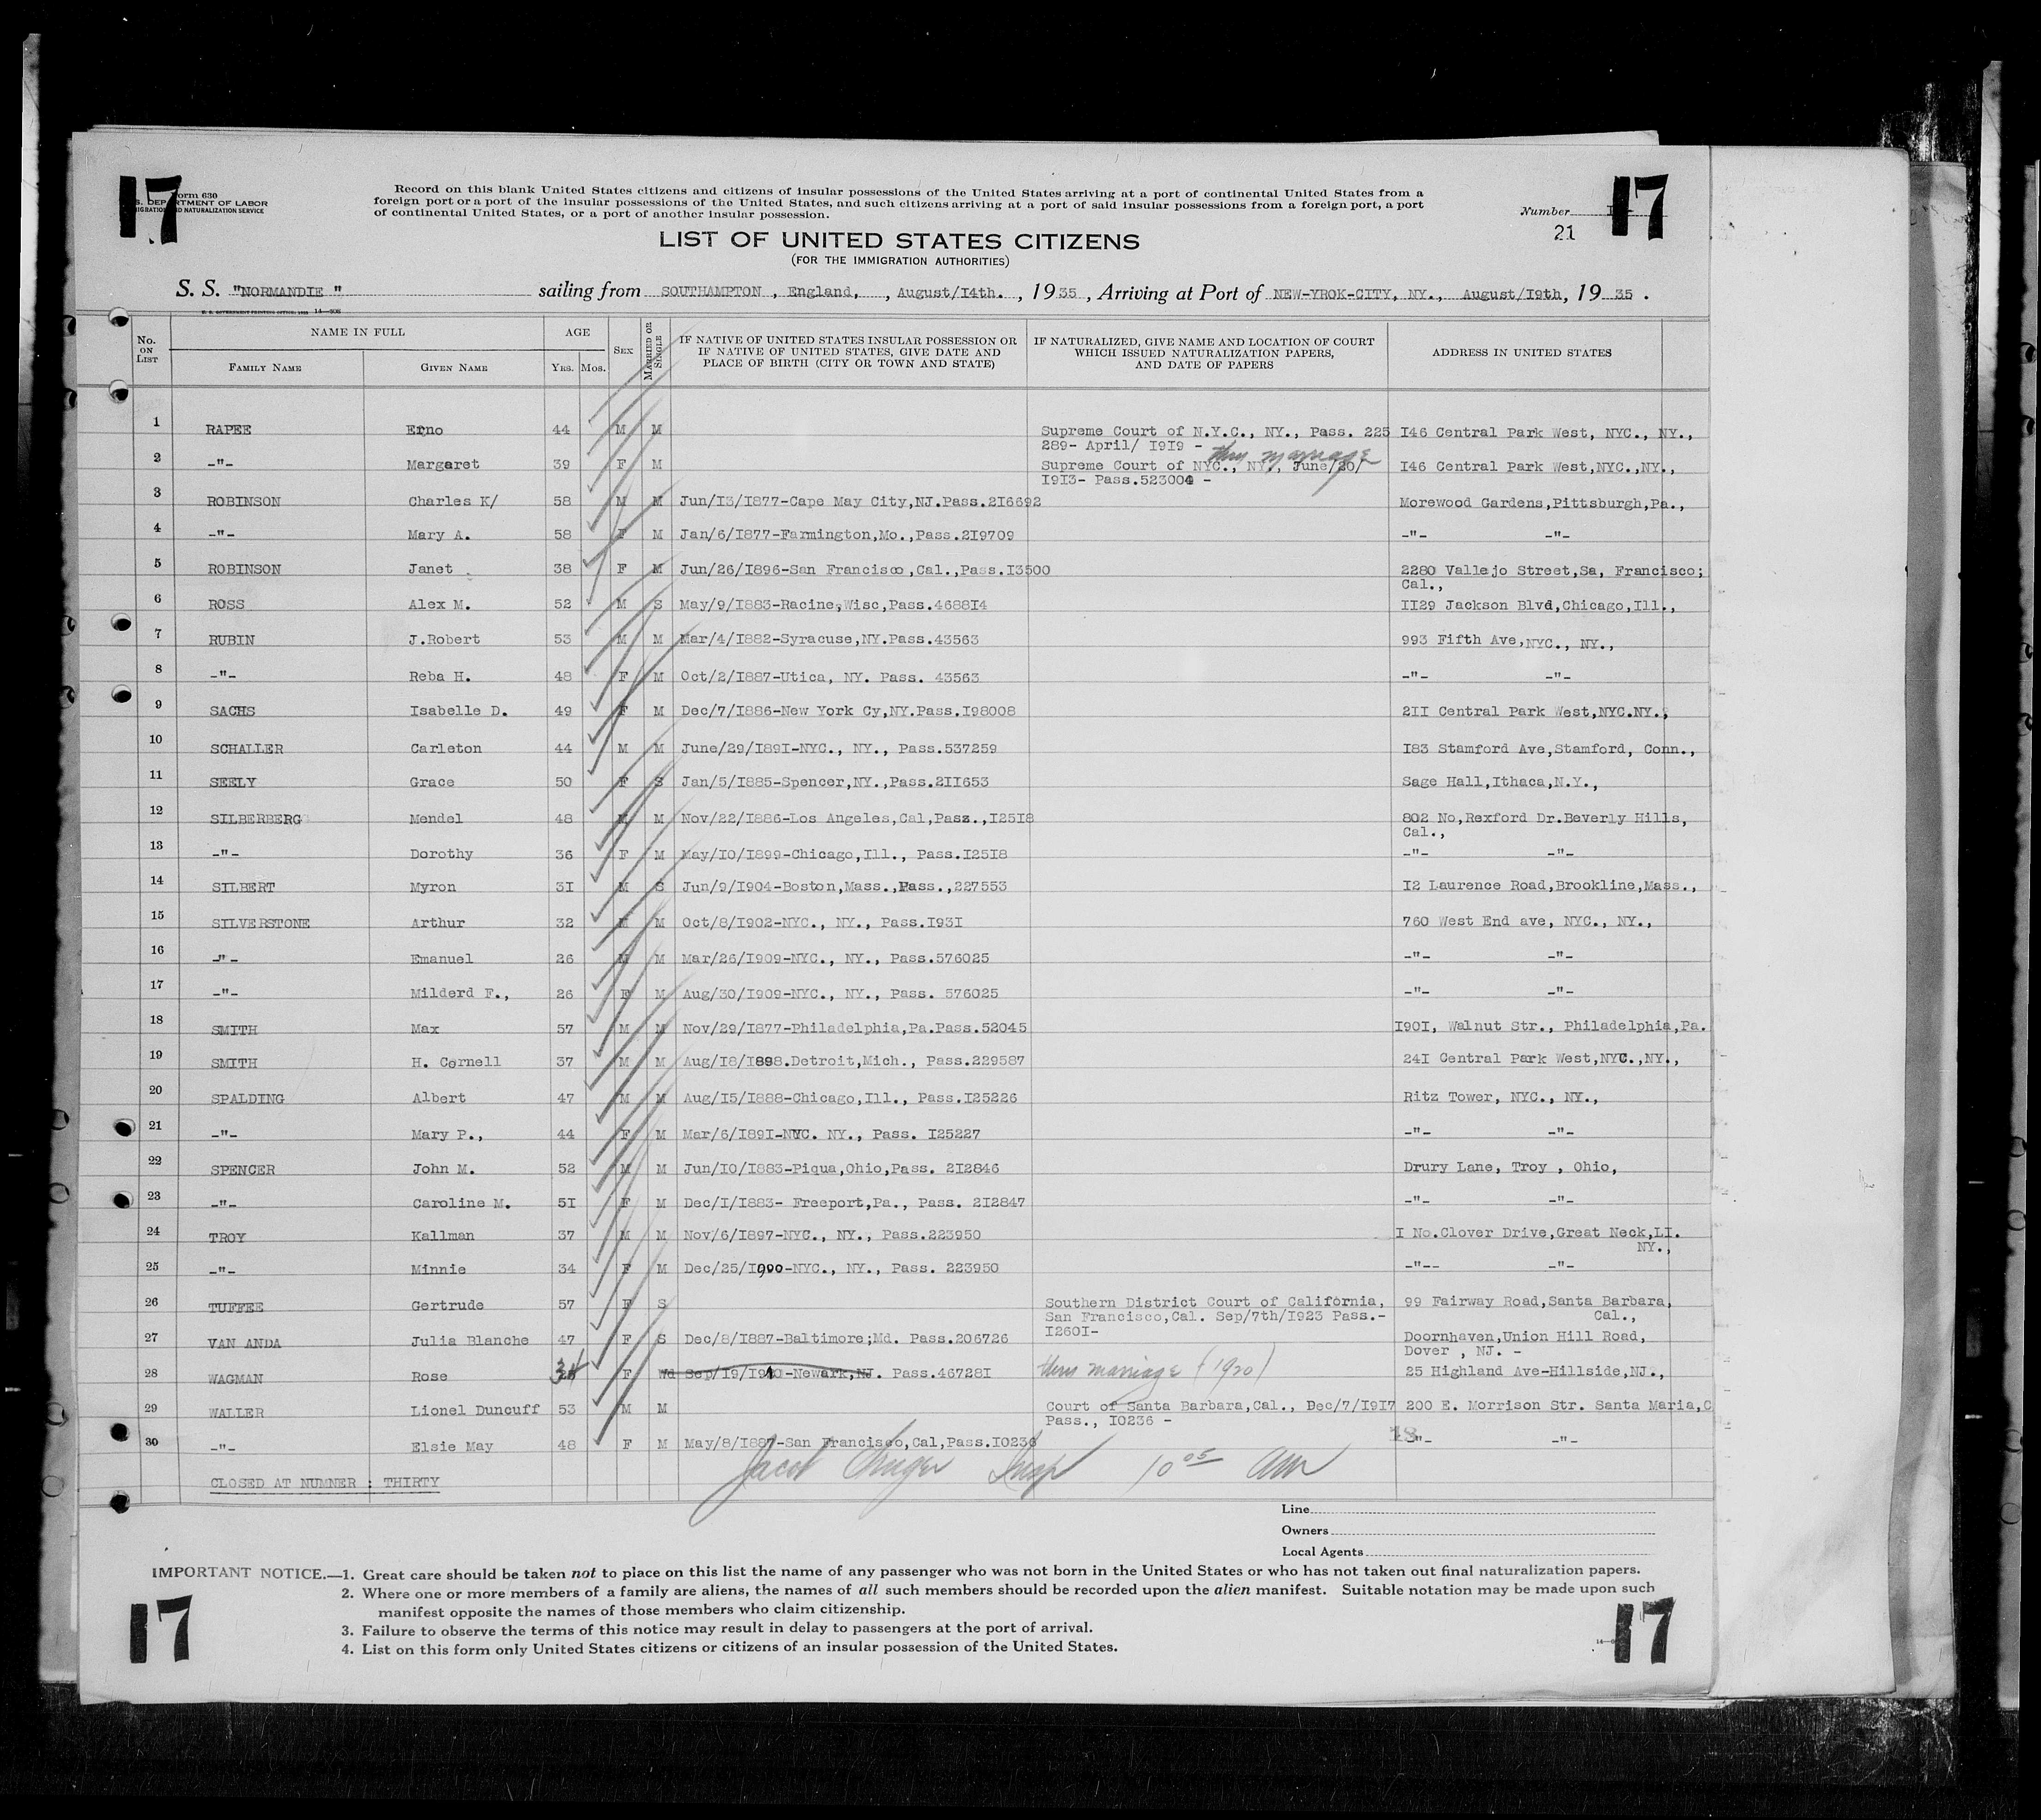 17
Form 630
U.S. DEPARTMENT OF LABOR
IMMIGRATION AND NATURALIZATION SERVICE
Record on this blank United States citizens and citizens of insular possessions of the United States arriving at a port of continental United States from a
foreign port or a port of the insular possessions of the United States, and such citizens arriving at a port of said insular possessions from a foreign port, a port
of continental United States, or a port of another insular possession.
Number
17
21
LIST OF UNITED STATES CITIZENS
(FOR THE IMMIGRATION AUTHORITIES)
S. S. "NORMANDIE" sailing from SOUTHAMPTON , England, , August/I4th. , 1935 , Arriving at Port of NEW-YROK-CITY, NY., August/I9th, 1935 .
U. S. GOVERNMENT PRINTING OFFICE: 14—208
No. ON LIST NAME IN FULL FAMILY NAME GIVEN NAME AGE YRS. MOS. SEX MARRIED OR SINGLE IF NATIVE OF UNITED STATES INSULAR POSSESSION OR IF NATIVE OF UNITED STATES, GIVE DATE AND PLACE OF BIRTH (CITY OR TOWN AND STATE) IF NATURALIZED, GIVE NAME AND LOCATION OF COURT WHICH ISSUED NATURALIZATION PAPERS, AND DATE OF PAPERS ADDRESS IN UNITED STATES
1 RAPEE Erno 44 M M Supreme Court of N.Y.C., NY., Pass. 225 I46 Central Park West, NYC., NY.,
289- April/ I9I9 - thru marriage
2 -"- Margaret 39 F M Supreme Court of NYC., NY., June/20/ I46 Central Park West,NYC.,NY.,
I9I3- Pass.523004 -
3 ROBINSON Charles K/ 58 M M Jun/I3/I877-Cape May City,NJ.Pass.2I6692 Morewood Gardens,Pittsburgh,Pa.,
4 -"- Mary A. 58 F M Jan/6/I877-Farmington,Mo.,Pass.2I9709 -"- -"-
5 ROBINSON Janet 38 F M Jun/26/I896-San Francisco,Cal.,Pass.I3500 2280 Vallejo Street,Sa, Francisco;
Cal.,
6 ROSS Alex M. 52 M S May/9/I883-Racine,Wisc,Pass.4688I4 II29 Jackson Blvd,Chicago,Ill.,
7 RUBIN J.Robert 53 M M Mar/4/I882-Syracuse,NY.Pass.43563 993 Fifth Ave,NYC., NY.,
8 -"- Reba H. 48 F M Oct/2/I887-Utica, NY. Pass. 43563 -"- -"-
9 SACHS Isabelle D. 49 F M Dec/7/I886-New York Cy,NY.Pass.I98008 2II Central Park West,NYC.NY.,
10 SCHALLER Carleton 44 M M June/29/I89I-NYC., NY., Pass.537259 I83 Stamford Ave,Stamford, Conn.,
11 SEELY Grace 50 F S Jan/5/I885-Spencer,NY.,Pass.2II653 Sage Hall,Ithaca,N.Y.,
12 SILBERBERG Mendel 48 M M Nov/22/I886-Los Angeles,Cal,Pasz.,I25I8 802 No,Rexford Dr.Beverly Hills,
Cal.,
13 -"- Dorothy 36 F M May/I0/I899-Chicago,Ill., Pass.I25I8 -"- -"-
14 SILBERT Myron 3I M S Jun/9/I904-Boston,Mass.,Pass.,227553 I2 Laurence Road,Brookline,Mass.,
15 SILVERSTONE Arthur 32 M M Oct/8/I902-NYC., NY., Pass.I93I 760 West End ave, NYC., NY.,
16 -"- Emanuel 26 M M Mar/26/I909-NYC., NY., Pass.576025 -"- -"-
17 -"- Milderd F., 26 F M Aug/30/I909-NYC., NY., Pass. 576025 -"- -"-
18 SMITH Max 57 M M Nov/29/I877-Philadelphia,Pa.Pass.52045 I90I, Walnut Str., Philadelphia,Pa.
19 SMITH H. Cornell 37 M M Aug/I8/I898.Detroit,Mich., Pass.229587 24I Central Park West,NYC.,NY.,
20 SPALDING Albert 47 M M Aug/I5/I888-Chicago,Ill., Pass.I25226 Ritz Tower, NYC., NY.,
21 -"- Mary P., 44 F M Mar/6/I89I-NYC. NY., Pass. I25227 -"- -"-
22 SPENCER John M. 52 M M Jun/I0/I883-Piqua,Ohio,Pass. 2I2846 Drury Lane, Troy , Ohio,
23 -"- Caroline M. 5I F M Dec/I/I883- Freeport,Pa., Pass. 2I2847 -"- -"-
24 TROY Kallman 37 M M Nov/6/I897-NYC., NY., Pass.223950 I No.Clover Drive,Great Neck,LI.
NY.,
25 -"- Minnie 34 F M Dec/25/I900-NYC., NY., Pass. 223950 -"-- -"-
26 TUFFEE Gertrude 57 F S Southern District Court of California, 99 Fairway Road,Santa Barbara,
San Francisco,Cal. Sep/7th/I923 Pass.- Cal.,
I260I-
27 VAN ANDA Julia Blanche 47 F S Dec/8/I887-Baltimore;Md. Pass.206726 Doornhaven,Union Hill Road,
Dover , NJ. -
28 WAGMAN Rose F Wd Sep/I9/-Newark,NJ. Pass.46728I thru marriage (1920) 25 Highland Ave-Hillside,NJ.,
29 WALLER Lionel Duncuff 53 M M Court of Santa Barbara,Cal., Dec/7/I9I7 200 E. Morrison Str. Santa Maria,C
Pass., I0236 -
30 -"- Elsie May 48 F M May/8/I887-San Francisco,Cal,Pass.I0236 18 -"- -"-
Jacob Insp 10 05 AM
CLOSED AT NUMNER : THIRTY
Line
Owners
Local Agents
IMPORTANT NOTICE.—1. Great care should be taken not to place on this list the name of any passenger who was not born in the United States or who has not taken out final naturalization papers.
2. Where one or more members of a family are aliens, the names of all such members should be recorded upon the alien manifest. Suitable notation may be made upon such
manifest opposite the names of those members who claim citizenship.
3. Failure to observe the terms of this notice may result in delay to passengers at the port of arrival.
4. List on this form only United States citizens or citizens of an insular possession of the United States.
17
17